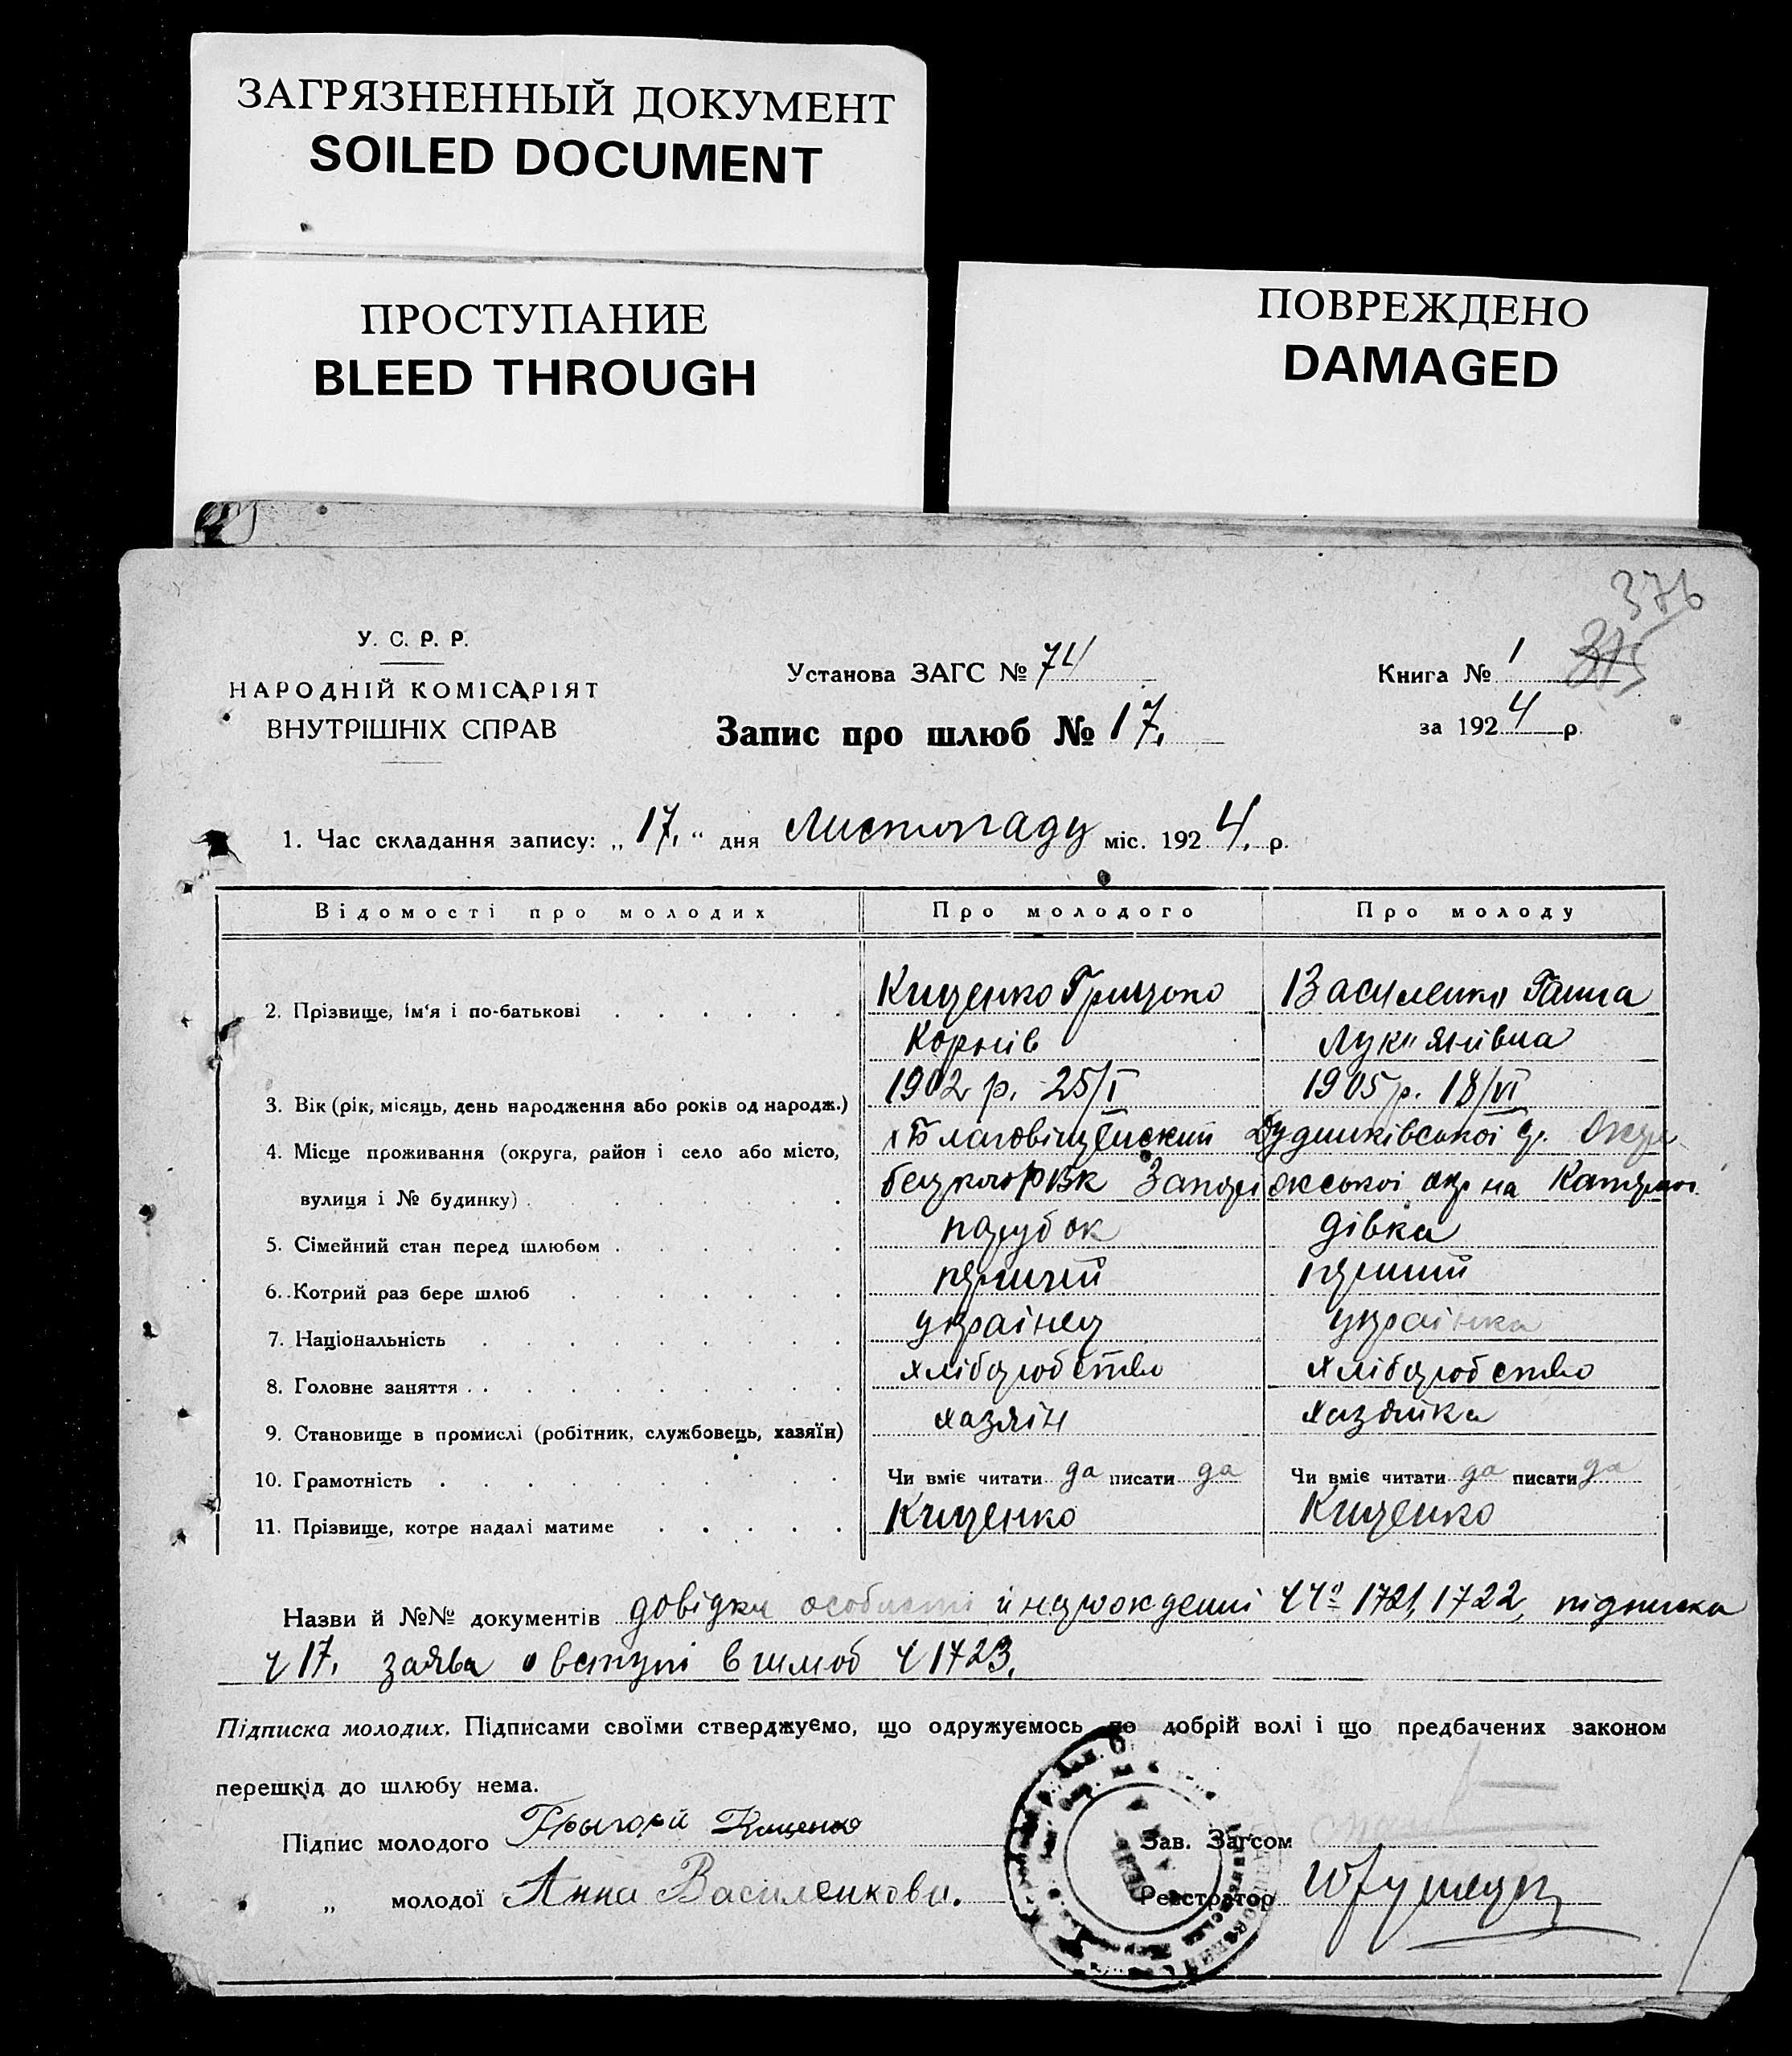 ЗАГРЯЗНЕННЫЙ ДОКУМЕНТ
SOILED DOCUMENT
ПРОСТУПАНИЕ
BLEED THROUGH
ПОВРЕЖДЕНО
DAMAGED
376
375
У. С. Р. Р.
НАРОДНІЙ КОМІСАРІЯТ
ВНУТРІШНІХ СПРАВ
Установа ЗАГС № 74
Запис про шлюб № 17.
Книга № 1
за 1924 р.
1. Час складання запису: „17.“ дня Листопаду міс. 1924. р.
Відомості про молодих Про молодого Про молоду
2. Прізвище, ім'я і по-батькові Кищенко Грицько Василенко Ганна
Корнів Лук"янівна
3. Вік (рік, місяць, день народження або років од народж.) 1902 р. 25/I 1905 р. 18/VI
4. Місце проживання (округа, район і село або місто, х Благовіщенский
вулиця і № будинку) РВК на
5. Сімейний стан перед шлюбом парубок дівка
6. Котрий раз бере шлюб перший перший
7. Національність українец українка
8. Головне заняття хліборобство хліборобство
9. Становище в промислі (робітник, службовець, хазяїн) хазяін хазяйка
10. Грамотність Чи вміє читати да писати да Чи вміє читати да писати да
11. Прізвище, котре надалі матиме Кищенко Кищенко
Назви й №№ документів довідки особисті й 1721, 1722, підписка
ч 17. заява о вступі в шлюб ч 1723.
Підписка молодих. Підписами своїми стверджуємо, що одружуємось по добрій волі і що предбачених законом
перешкід до шлюбу нема.
Підпис молодого Григорій Кищенко
Зав. Загсом
„ молодої Анна Василенкова.
Реєстратор